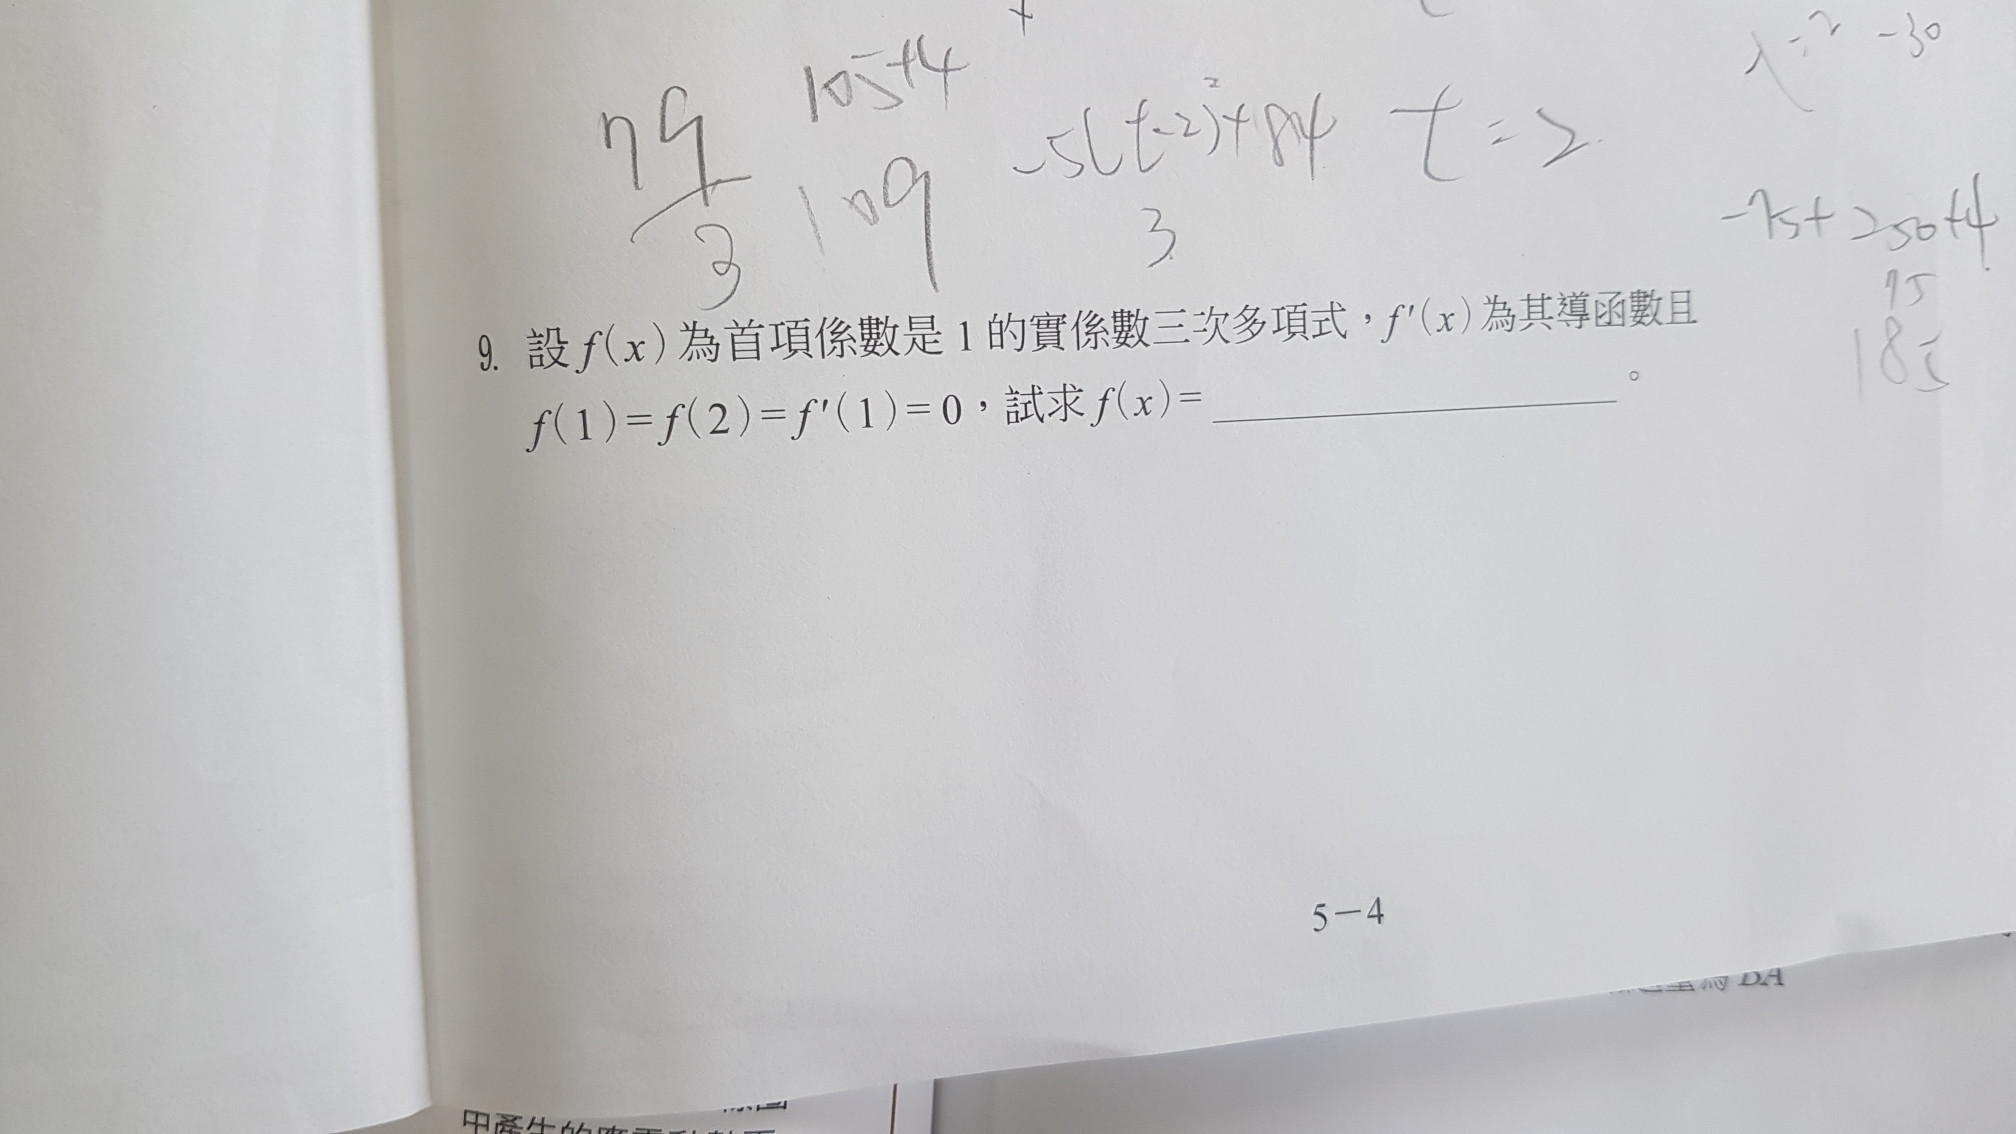 λ=2 -30
105+4
79
3
109
-5(t-2)²+84 t=2
3
-75+250+4
75
185
9. 設 f(x) 為首項係數是 1 的實係數三次多項式，f'(x) 為其導函數且
f(1)=f(2)=f'(1)=0，試求 f(x)=＿＿＿＿＿＿＿＿。
5－4
為 BA